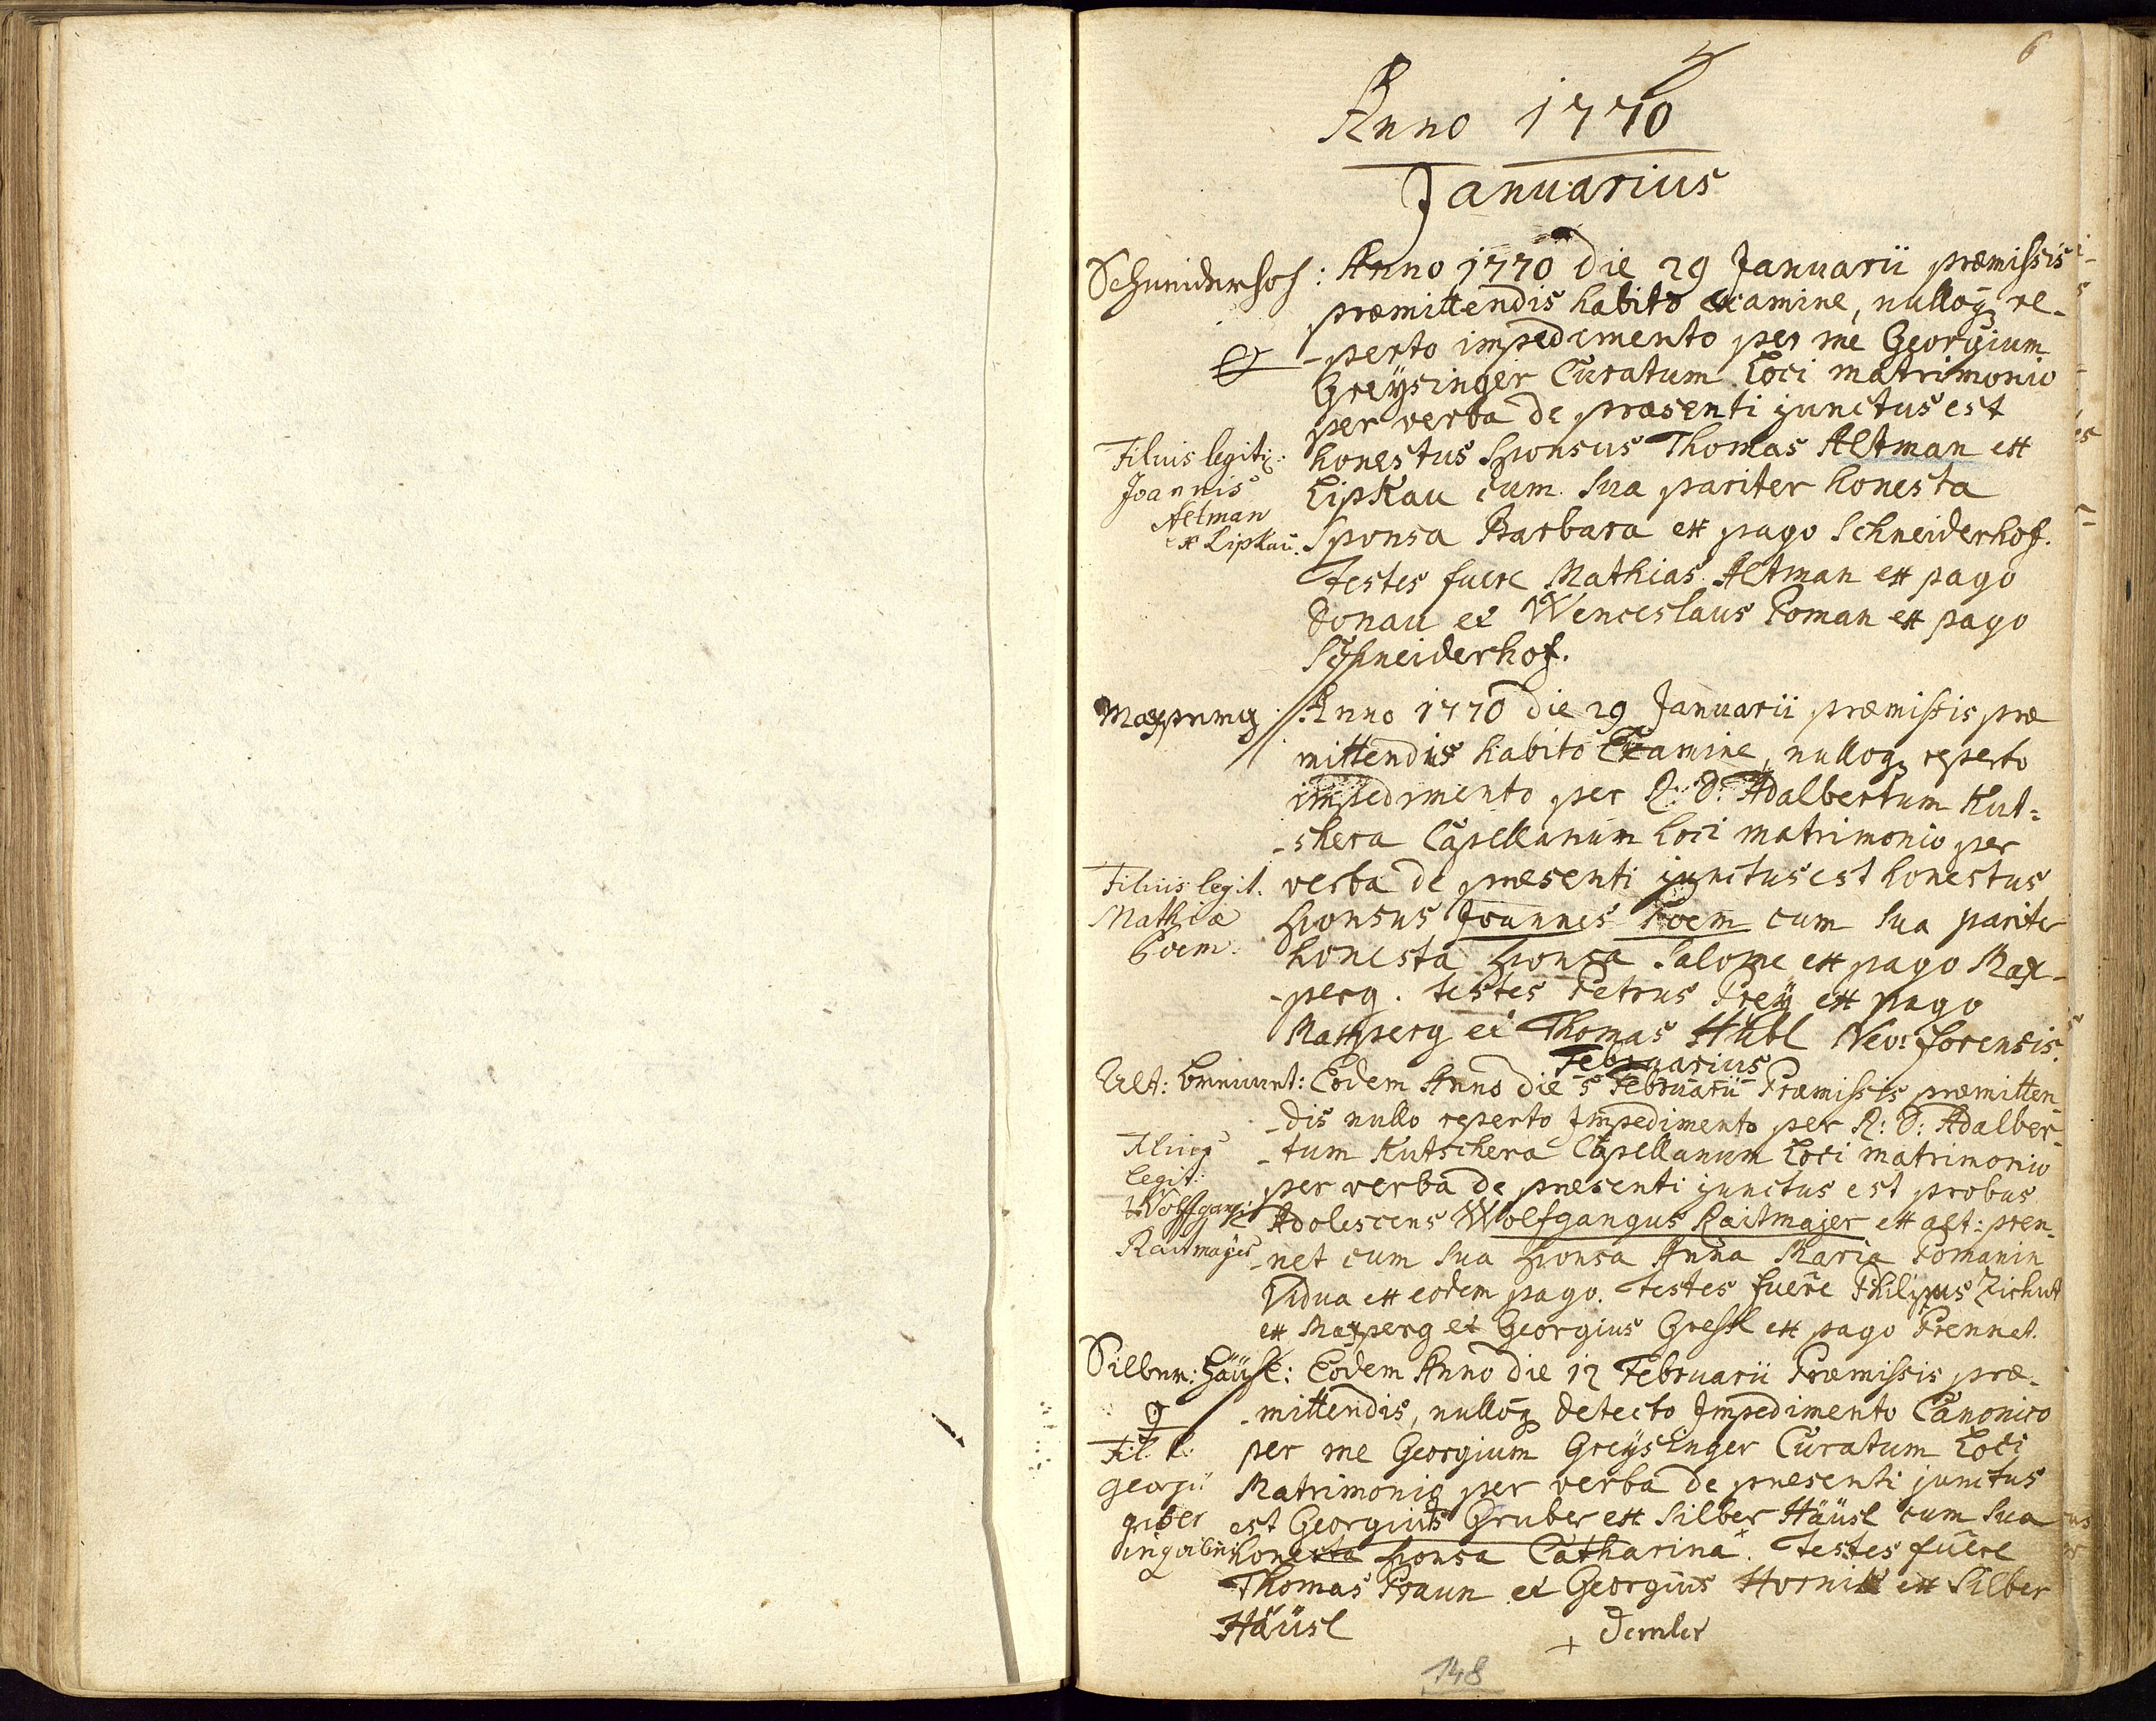 6
Anno 1770
Januarius
Schneiderhof: Anno 1770 die 29 Januarii præmissis
præmittendis habito examine, nulloq3 re-
-perto impedimento per me Georgium
Greÿsinger Curatum Loci matrimonio
per verba de præsenti junctus est
Filius legiti: honestus Sponsus Thomas Altman ex
Joannis Lipkau cum sua pariter honesta
Altman
ex Lipkau. Sponsa Barbara ex pago Schneiderhof.
Testes fuere Mathias Altman ex pago
Donau et Wenceslaus Poman ex pago
Schneiderhof.
Maxperg Anno 1770 die 29 Januarii præmissis præ
mittendis habito Examine, nulloq3 reperto
impedimento per R: D: Adalbertum Kut=
-shera Capellanum Loci matrimonio per
Filius legit. verba de præsenti junctus est honestus
Mathiæ Sponsus Joannes Poem cum sua pariter
Poem. honesta Sponsa Salome ex pago Max-
-perg. testes Petrus Preÿ ex pago
Maxperg et Thomas Hübl Neo: forensis.
Februarius
Alt: brennet: Eodem Anno die 5 Februarii Præmissis præmitten-
-dis nullo reperto Impedimento per R: D: Adalber-
Filius -tum Kutschera Capellanum Loci matrimonio
legit: per verba de præsenti junctus est probus
Wolfgangi Adolescens Wolfgangus Raitmajer ex alt: pren-
Raitmajer -net cum sua Sponsa Anna Maria Pomanin
Vidua ex eodem pago. Testes fuere Philippus Zichut
ex Maxperg et Georgius Gresl ex pago Prennet.
Silber: Häusl: Eodem Anno die 12 Februarii Præmissis præ-
-mittendis, nulloq3 detecto Impedimento Canonico
Fil. l: per me Georgium Greÿsinger Curatum Loci
Georgii Matrimonio per verba de præsenti junctus
est Georgius Gruber ex Silber Häusl cum sua
honesta Sponsa Catharina + Testes fuere
Thomas Praun et Georgius Hornik ex Silber
Häusl + Demler
148